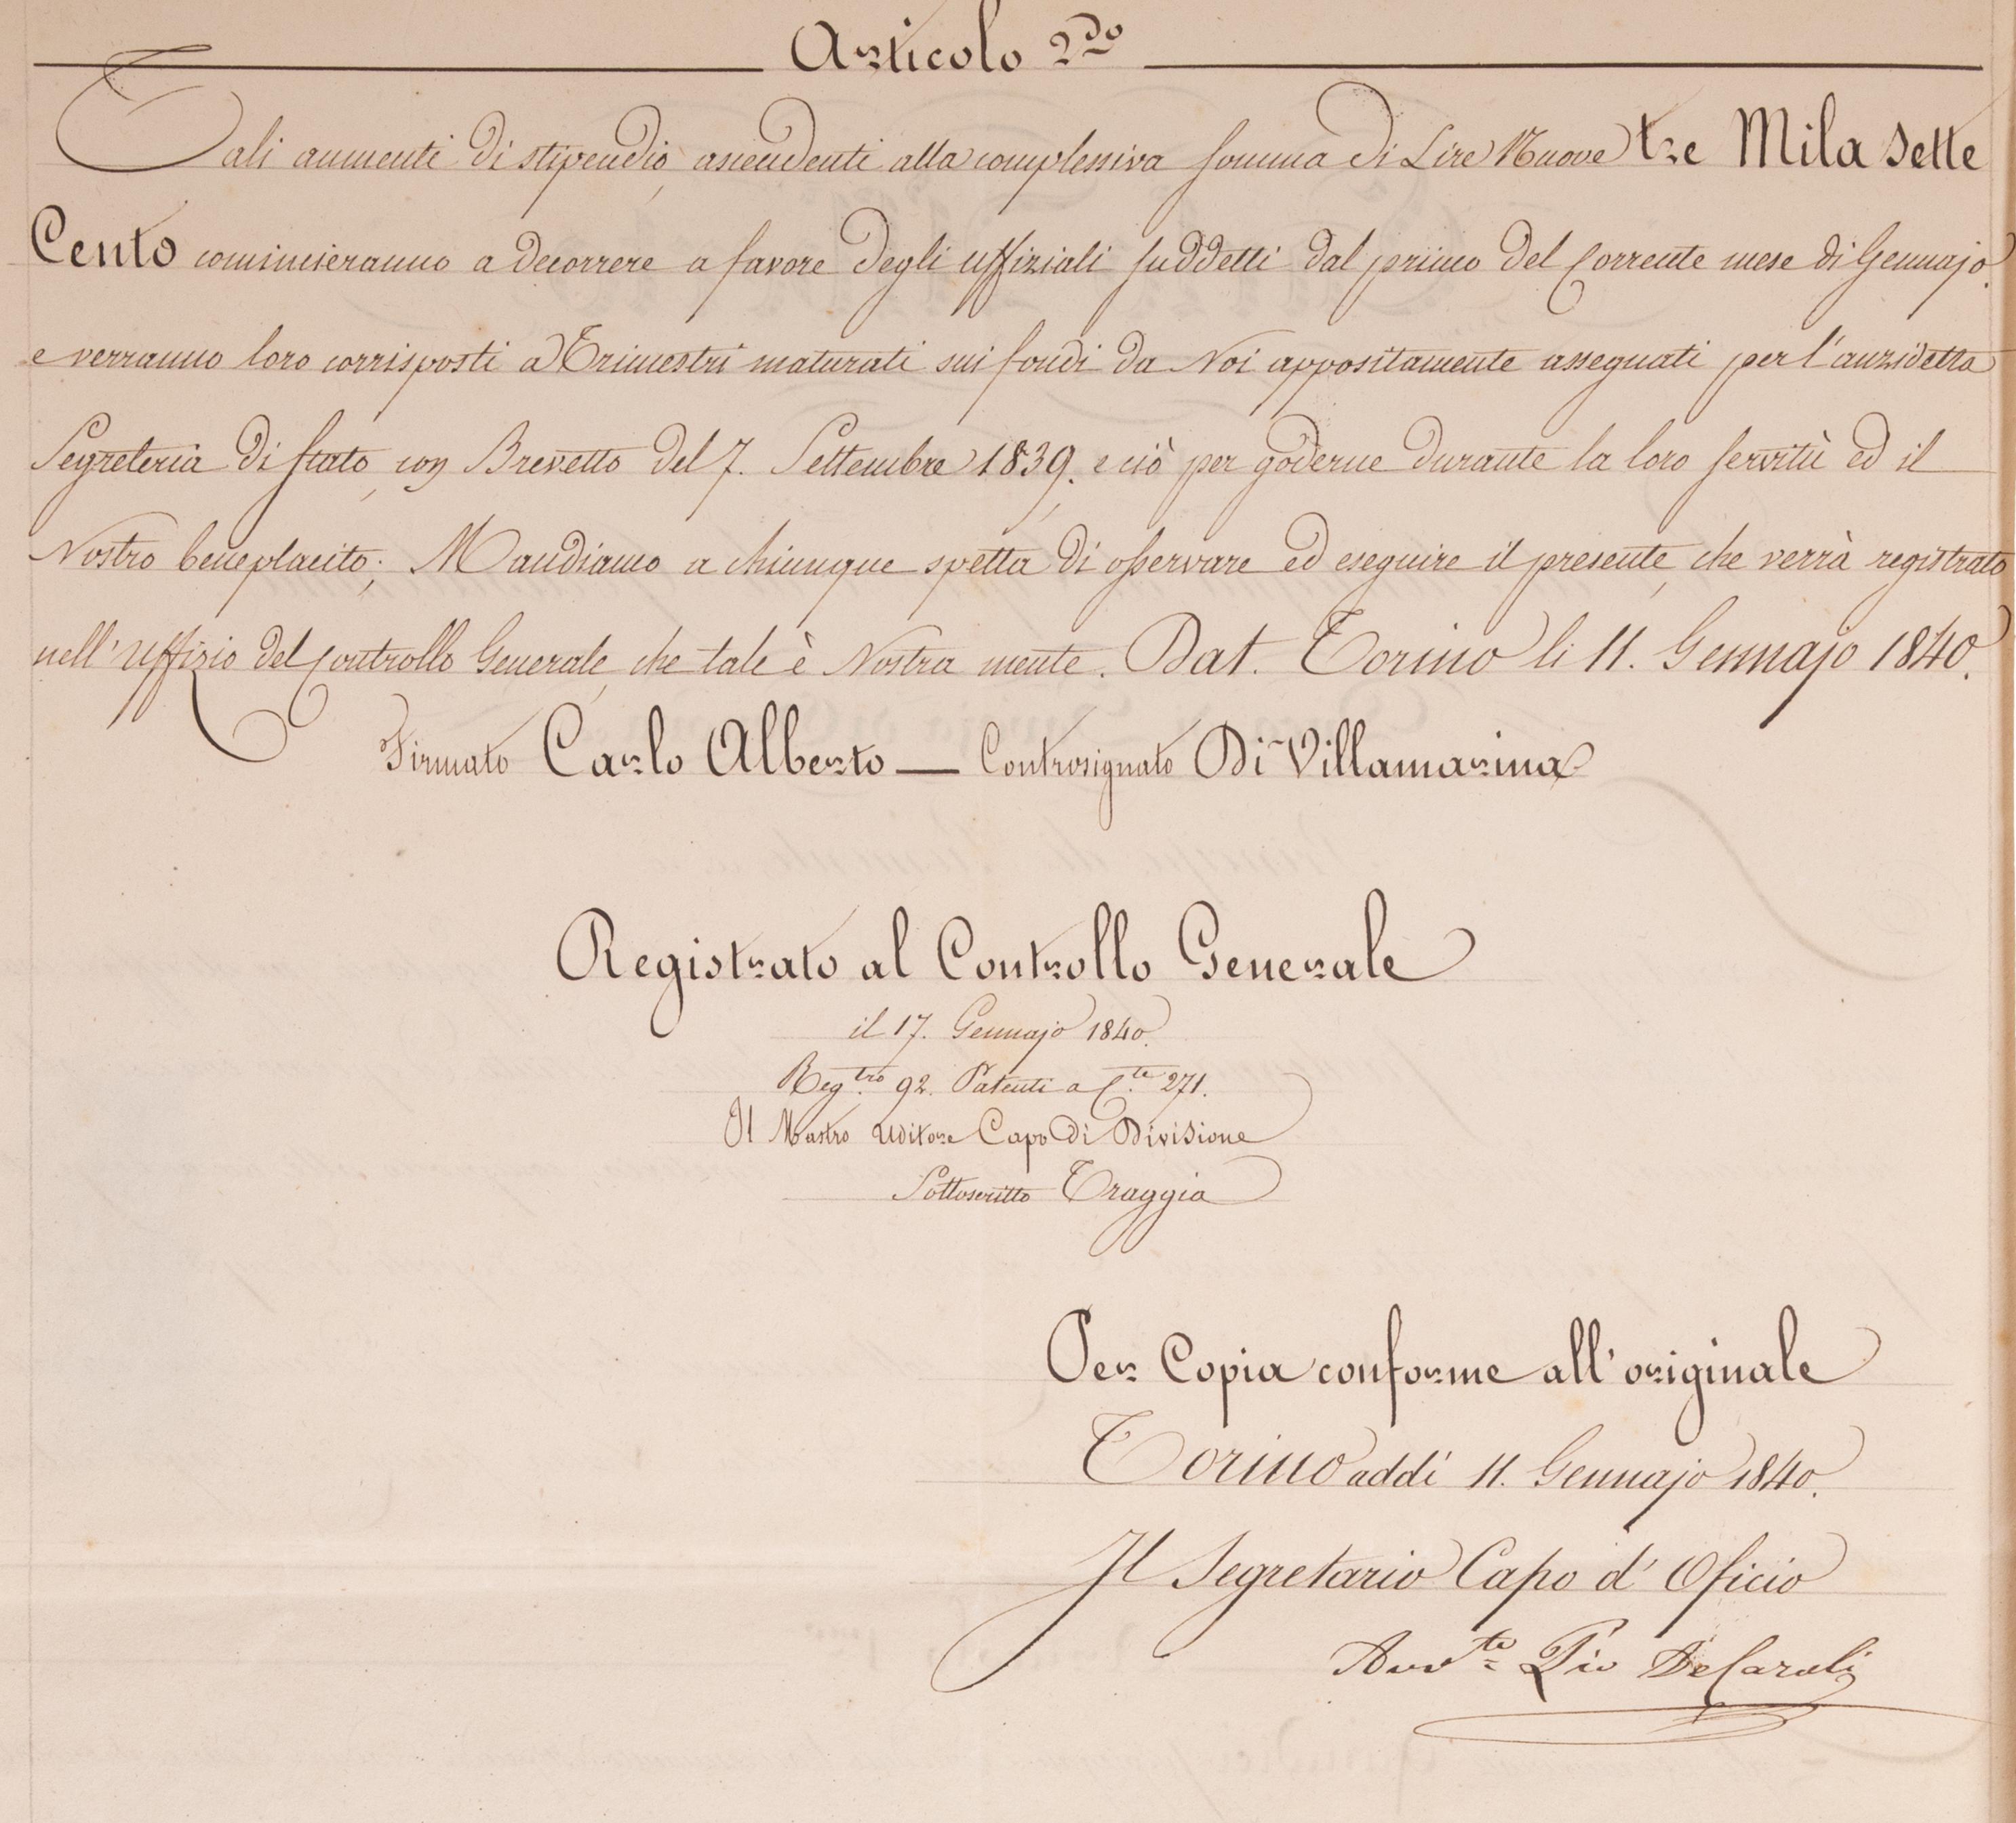 Articolo 2do
Tali aumenti di stipendio, ascendenti alla complessiva somma di Lire Nuove tre Mila sette
Cento comincieranno a decorrere a favore degli uffiziali suddetti dal primo del corrente mese di Gennajo,
e verranno loro corrisposti a Trimestri maturati sui fondi da Noi appositamente assegnati per l'anzidetta
Segreteria di stato, con Brevetto del 7. Settembre 1839, e ciò per goderne durante la loro servitù ed il
Nostro beneplacito; Mandiamo a chiunque spetta di osservare ed eseguire il presente, che verrà registrato
nell'Uffizio del Controllo Generale, che tale è Nostra mente. Dat. Torino li 11. Gennajo 1840.
Firmato Carlo Alberto — Controsignato Di Villamarina
Registrato al Controllo Generale
il 17. Gennajo 1840.
Reg.tro 92. Patenti a C.te 271.
Il Mastro Uditore Capo di Divisione
Sottoscritto Traggia
Per Copia conforme all'originale
Torino addì 11. Gennajo 1840.
Il Segretario Capo d'Oficio
Avv.to Pio DeCaroli